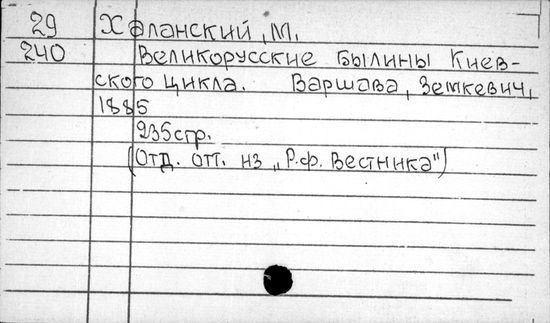 29 Халанский, М.
240 Великорусские былины Киев-
ского цикла. Варшава, Земкевич,
1885
235стр.
(Отд. отт. из „Р.ф. Вестника")